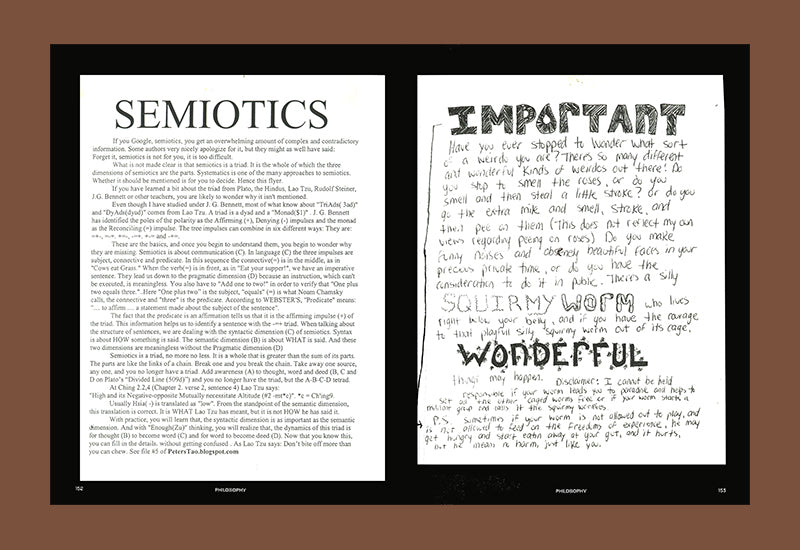 SEMIOTICS
If you Google, semiotics, you get an overwhelming amount of complex and contradictory
information. Some authors very nicely apologize for it, but they might as well have said:
Forget it, semiotics is not for you, it is too difficult.
What is not made clear is that semiotics is a triad. It is the whole of which the three
dimensions of semiotics are the parts. Systematics is one of the many approaches to semiotics.
Whether it should be mentioned is for you to decide. Hence this flyer.
If you have learned a bit about the triad from Plato, the Hindus, Lao Tzu, Rudolf Steiner,
J.G. Bennett or other teachers, you are likely to wonder why it isn't mentioned.
Even though I have studied under J.G. Bennett, most of what know about "TriAds( 3ad)"
and "DyAds(dyad)" comes from Lao Tzu. A triad is a dyad and a "Monad($1)" . J. G. Bennett
has identified the poles of the polarity as the Affirming (+), Denying (-) impulses and the monad
as the Reconciling (=) impulse. The tree impulses can combine in six different ways: They are:
These are the basics, and once you begin to understand them, you begin to wonder why
they are missing. Semiotics is about communication (C). In language (C) the three impulses are
subject, connective and predicate. In this sequence the connective(=) is in the middle, as in
"Cows eat Grass." When the verb(=) is in front, as in "Eat your supper!", we have an imperative
sentence. They lead us down to the pragmatic dimension (D) because an instruction, which can't
be executed, is meaningless. You also have to "Add one to two!" in order to verify that "One plus
two equals three.". Here "One plus two" is the subject, "equals" (=) is what Noam Chamsky
calls, the connective and "three" is the predicate. According to WEBSTER'S, "Predicate" means:
".... to affirm .... a statement made about the subject of the sentence".
The fact that the predicate is an affirmation tells us that it is the affirming impulse (+) of
the triad. This information helps us to identify a sentence with the -=+ triad. When talking about
the structure of sentences, we are dealing with the syntactic dimension (C) of semiotics. Syntax
is about HOW something is said. The semantic dimension (B) is about WHAT is said. And these
two dimensions are meaningless without the Pragmatic dimension (D)
Semiotics is a triad, no more no less. It is a whole that is greater than the sum of its parts.
The parts are like the links of a chain. Break one and you break the chain. Take away one source,
any one, and you no longer have a triad. Add awareness (A) to thought, word and deed (B, C and
D on Plato's "Divided Line (509d)") and you no longer have the triad, but the A-B-C-D tetrad.
At Ching 2.2,4 (Chapter 2. verse 2, sentence 4) Lao Tzu says:
"High and its Negative-opposite Mutually necessitate Altitude (#2 -mt*c)". *c = Ch'ing9.
Usually Hsia( -) is translated as "low". From the standpoint of the semantic dimension,
this translation is correct. It is WHAT Lao Tzu has meant, but it is not HOW he has said it.
With practice, you will learn that, the syntactic dimension is as important as the semantic
dimension. And with "Enough(Zu)" thinking, you will realize that, the dynamics of this triad is
for thought (B) to become word (C) and for word to become deed (D). Now that you know this,
you can fill in the details. without getting confused . As Lao Tzu says: Don't bite off more than
you can chew. See file #5 of PetersTao.blogspot.com
152
PHILOSOPHY
IMPORTANT
Have you ever stopped to wonder what sort
of a weirdo you are? There's so many different
and wonderful kinds of weirdos out there! Do
you stop to smell the roses, or do you
smell and then steal a little stroke? or do you
go the extra mile and smell, stroke, and
then pee on them (This does not reflect my own
views regarding peeing on roses) Do you make
funny noises and beautiful faces in your
precious private time, or do you have the
consideration to do it in public. There's a silly
SQUIRMY WORM who lives
right below your belly, and if you have the courage
to that playfull silly squirmy worm out of its cage.
WONDERFUL
things may happen. Disclaimer: I cannot be held
responsible if your worm leads you to paradise and helps to
set all the other caged worms free or if your worm starts a
P.S. Sometimes if your worm is not allowed out to play, and
is not allowed to feed on the freedoms of experience, he may
get hungry and start eatin away at your gut, and it hurts,
but he mean no harm, just like you.
PHILOSOPHY
153